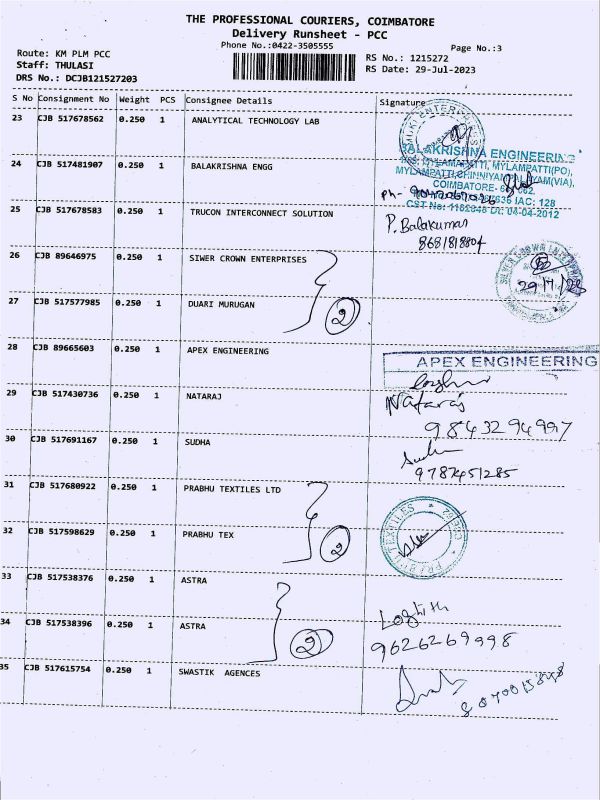 THE PROFESSIONAL COURIERS, COIMBATORE
Delivery Runsheet - PCC
Phone No.:0422-3505555
Page No.:3
Route: KM PLM PCC
Staff: THULASI
DRS No.: DCJB121527203
RS No.: 1215272
RS Date: 29-Jul-2023
S No Consignment No Weight PCS Consignee Details Signature
23 CJB 517678562 0.250 1 ANALYTICAL TECHNOLOGY LAB
BALAKRISHNA ENGINEERING
MYLAMPATTI(PO),
24 CJB 517481907 0.250 1 BALAKRISHNA ENGG
COIMBATORE-
IAC: 128
04-04-2012
25 CJB 517678583 0.250 1 TRUCON INTERCONNECT SOLUTION
P. Balakumar
8681818804
26 CJB 89646975 0.250 1 SIWER CROWN ENTERPRISES
29/7/23
27 CJB 517577985 0.250 1 DUARI MURUGAN
2
28 CJB 89665603 0.250 1 APEX ENGINEERING
APEX ENGINEERING
29 CJB 517430736 0.250 1 NATARAJ
Nataraj
9843294997
30 CJB 517691167 0.250 1 SUDHA
9787451285
31 CJB 517680922 0.250 1 PRABHU TEXTILES LTD
32 CJB 517598629 0.250 1 PRABHU TEX
2
PRABHU TEXTILES
33 CJB 517538376 0.250 1 ASTRA
34 CJB 517538396 0.250 1 ASTRA
2
9626269998
35 CJB 517615754 0.250 1 SWASTIK AGENCES